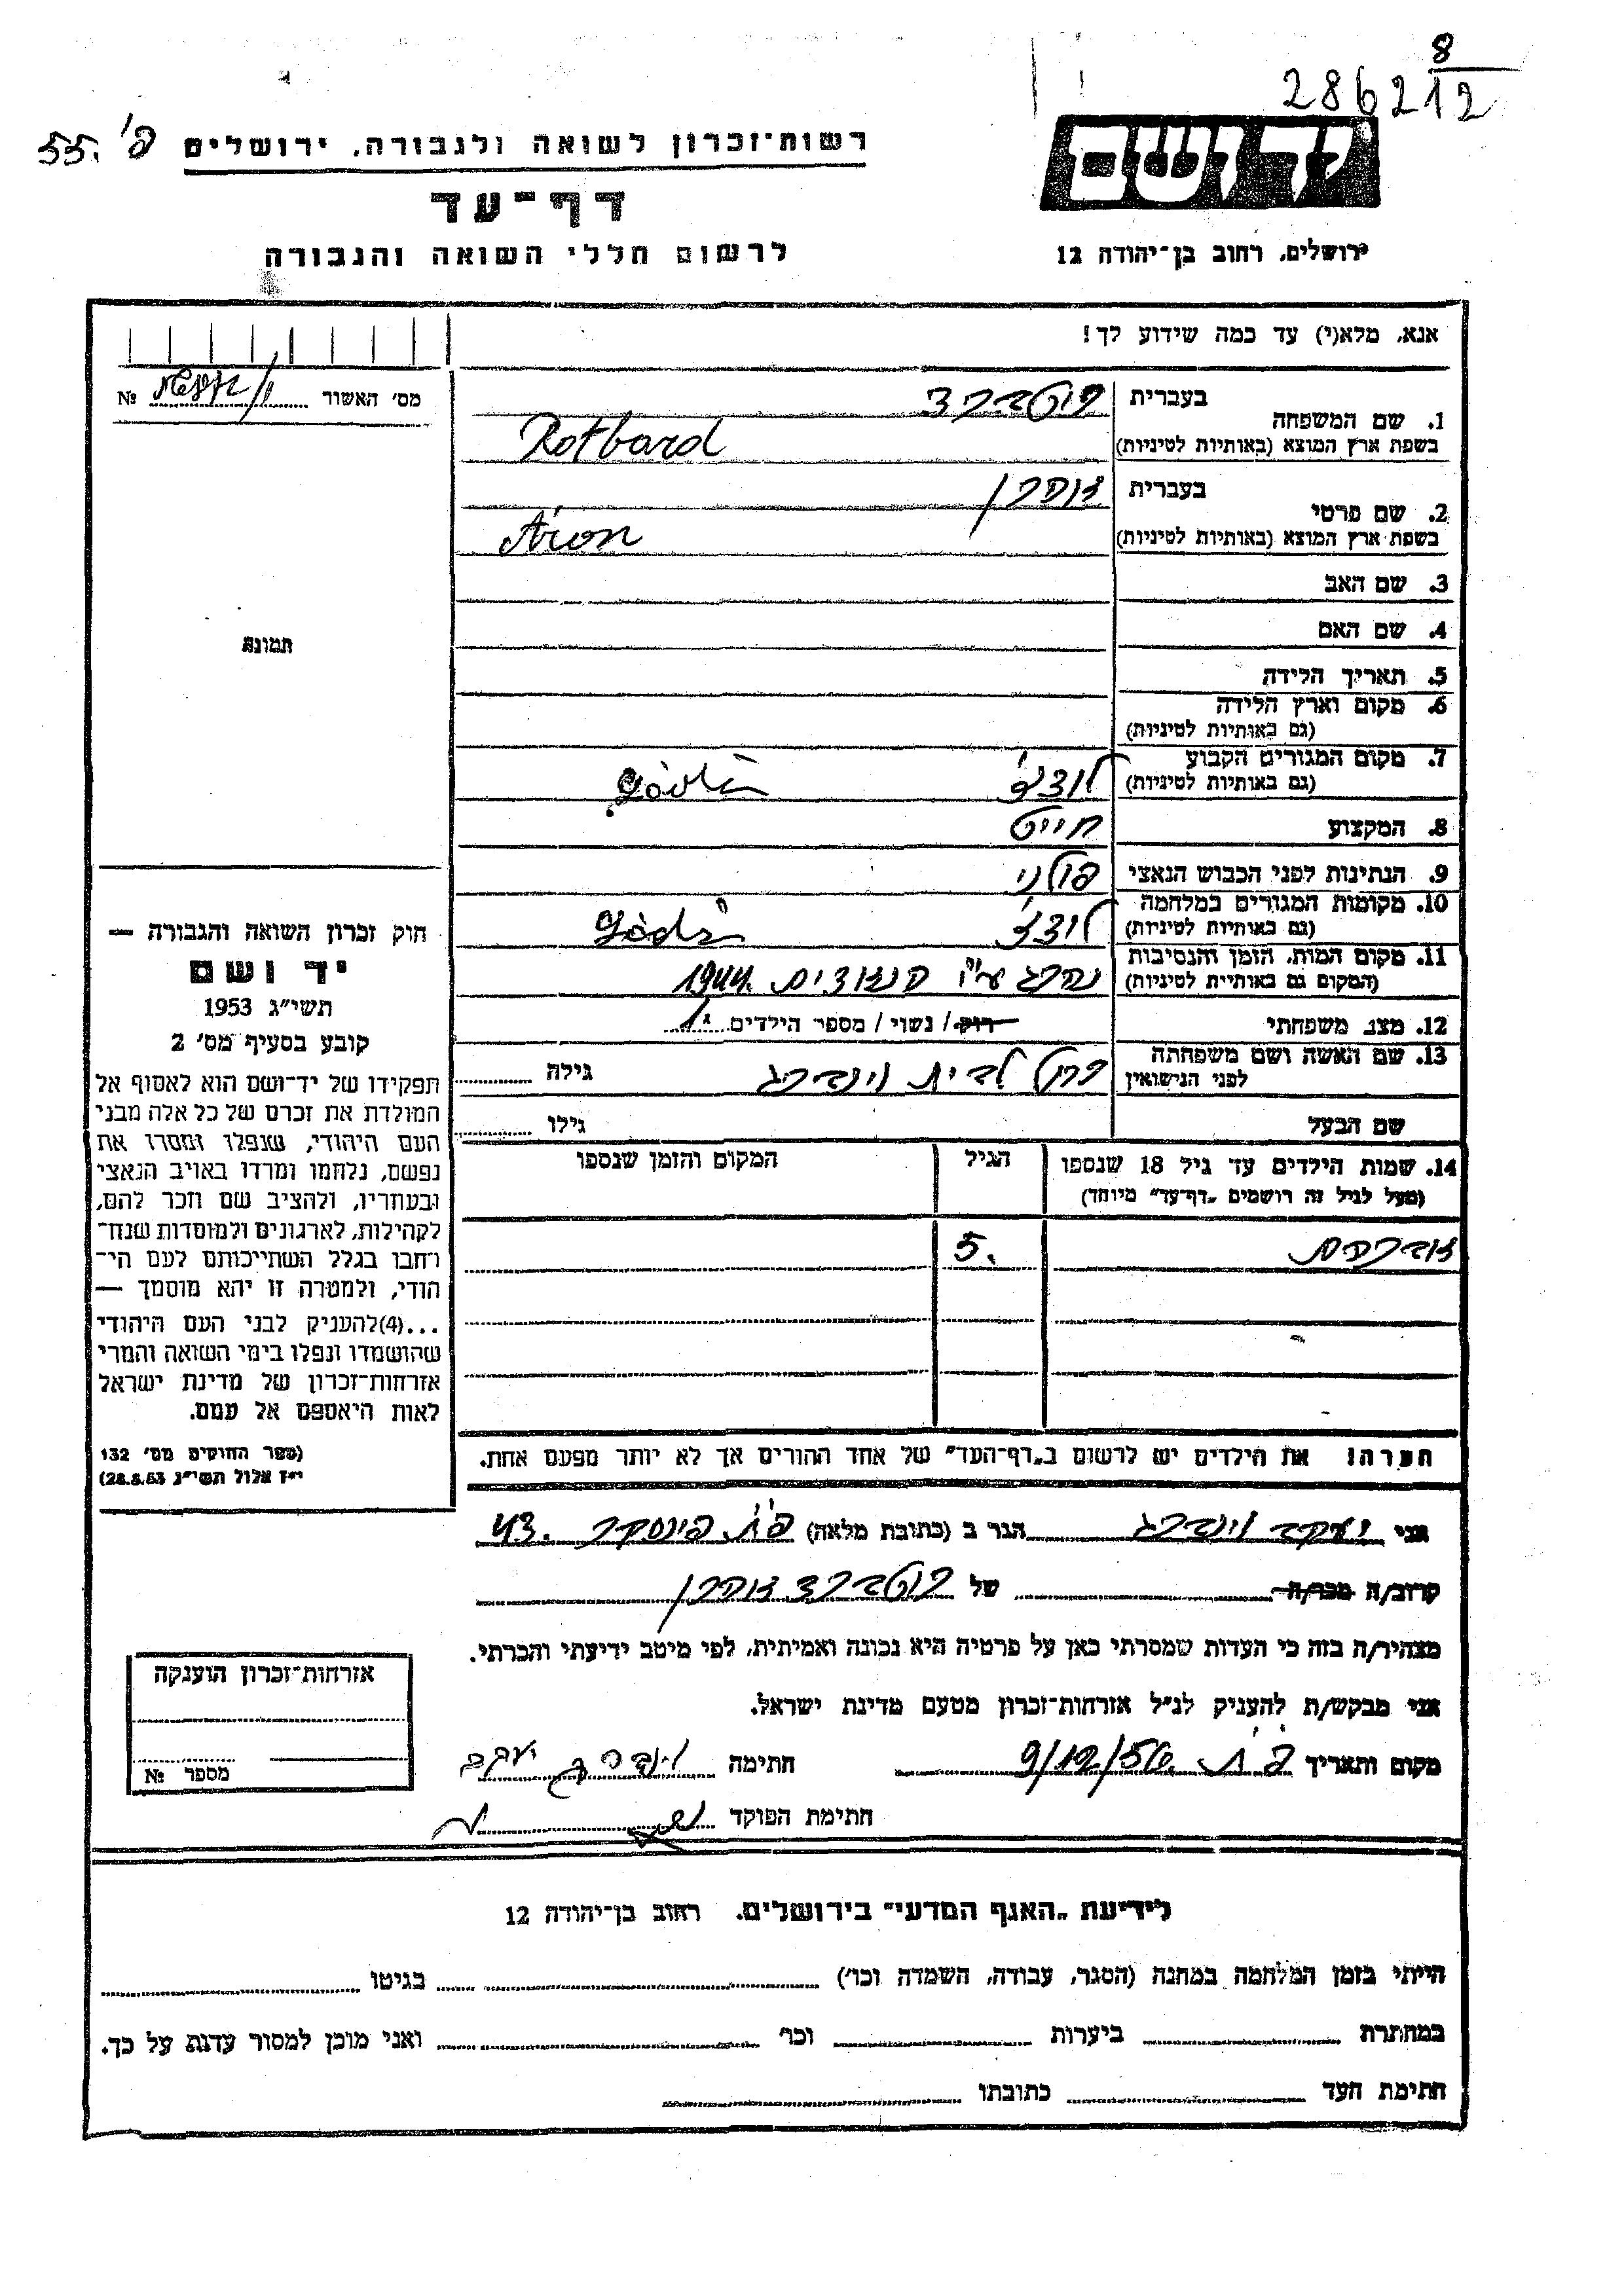 8
286212
רשות־זכרון לשואה ולגבורה, ירושלים
פ' 55.
יד ושם
דף־עד
ירושלים, רחוב בן־יהודה 12
לרשום חללי השואה והגבורה
אנא, מלא(י) עד כמה שידוע לך!
מס' האשור № 
1. שם המשפחה
בעברית רוטברד
בשפת ארץ המוצא (באותיות לטיניות) Rotbard
2. שם פרטי
בעברית אהרן
בשפת ארץ המוצא (באותיות לטיניות) Aron
3. שם האב
4. שם האם
תמונה
5. תאריך הלידה
6. מקום וארץ הלידה
(גם באותיות לטיניות)
7. מקום המגורים הקבוע
(גם באותיות לטיניות) לודג'
8. המקצוע חייט
9. הנתינות לפני הכבוש הנאצי פולני
10. מקומות המגורים במלחמה
(גם באותיות לטיניות) לודג' Lódz
11. מקום המות, הזמן והנסיבות
(המקום גם באותיות לטיניות) נהרג ע"י הנאצים 1944.
12. מצב משפחתי רוק/ נשוי/ מספר הילדים 1
13. שם האשה ושם משפחתה
לפני הנישואין לבית וינברג גילה
שם הבעל גילו
14. שמות הילדים עד גיל 18 שנספו
(מעל לגיל זה רושמים „דף־עד” מיוחד)
הגיל
המקום והזמן שנספו
5.
הערה! את הילדים יש לרשום ב„דף־העד” של אחד ההורים אך לא יותר מפעם אחת.
חוק זכרון השואה והגבורה —
יד ושם
תשי"ג 1953
קובע בסעיף מס' 2
תפקידו של יד־ושם הוא לאסוף אל
המולדת את זכרם של כל אלה מבני
העם היהודי, שנפלו ומסרו את
נפשם, נלחמו ומרדו באויב הנאצי
ובעוזריו, ולהציב שם וזכר להם,
לקהילות, לארגונים ולמוסדות שנח־
רבו בגלל השתייכותם לעם הי־
הודי, ולמטרה זו יהא מוסמך —
...(4)להעניק לבני העם היהודי
שהושמדו ונפלו בימי השואה והמרי
אזרחות־זכרון של מדינת ישראל
לאות היאספם אל עמם.
(ספר החוקים מס' 132
י"ז אלול תשי"ג 28.8.53)
אני יעקב וינברג הגר ב (כתובת מלאה) פ"ת פינסקר 43.
קרוב/ה מכר/ה של רוטברד אהרן
מצהיר/ה בזה כי העדות שמסרתי כאן על פרטיה היא נכונה ואמיתית, לפי מיטב ידיעתי והכרתי.
אני מבקש/ת להעניק לנ"ל אזרחות־זכרון מטעם מדינת ישראל.
מקום ותאריך פ"ת 9/12/56 חתימה וינברג יעקב
חתימת הפוקד
אזרחות־זכרון הוענקה
מספר №
לידיעת „האגף המדעי” בירושלים, רחוב בן־יהודה 12
הייתי בזמן המלחמה במחנה (הסגר, עבודה, השמדה וכו') בגיטו
במחתרת ביערות וכו' ואני מוכן למסור עדות על כך.
חתימת העד כתובתו